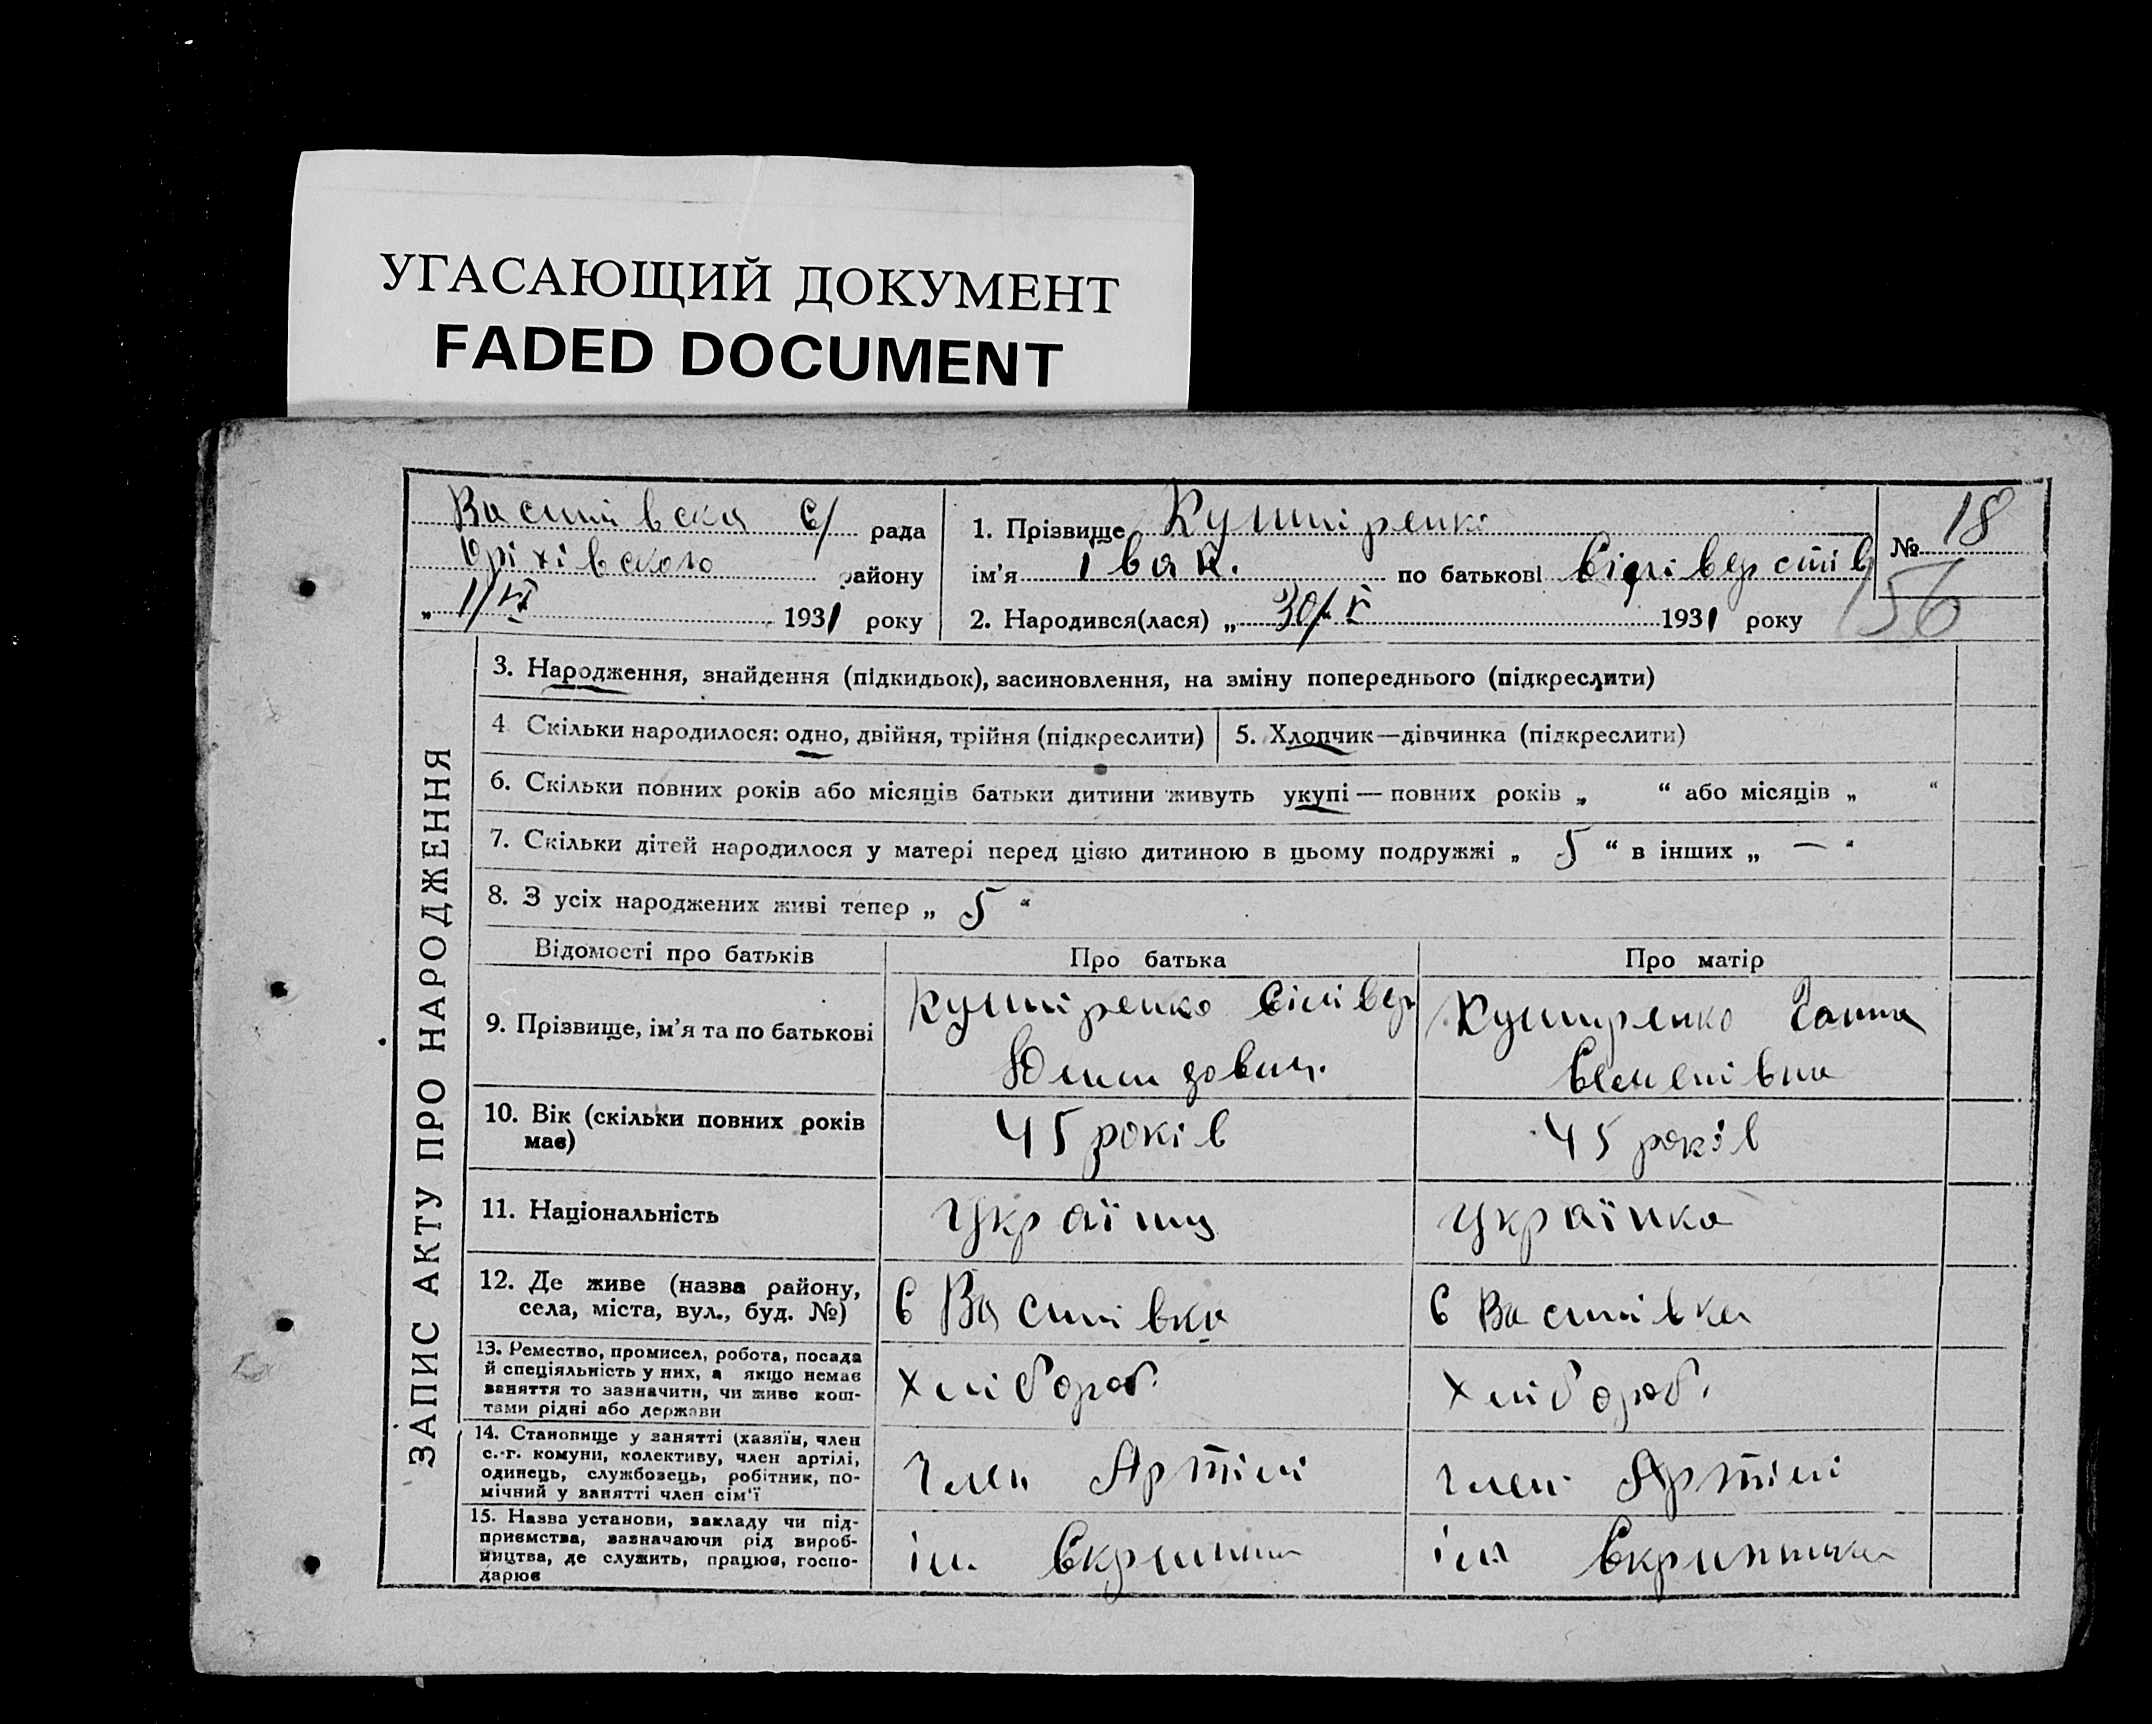 УГАСАЮЩИЙ ДОКУМЕНТ
FADED DOCUMENT
ЗАПИС АКТУ ПРО НАРОДЖЕННЯ
Василівска С/ рада
Оріхівского району
„ 1/VI 1931 року
1. Прізвище Кушніренко
ім'я Іван. по батькові Сіліверстів
2. Народився(лася) „ 30/V 1931 року
№ 18
56
3. Народження, знайдення (підкидьок), засиновлення, на зміну попереднього (підкреслити)
4 Скільки народилося: одно, двійня, трійня (підкреслити)
5. Хлопчик—дівчинка (підкреслити)
6. Скільки повних років або місяців батьки дитини живуть укупі — повних років „ “ або місяців „ “
7. Скільки дітей народилося у матері перед цією дитиною в цьому подружжі „ 5 “ в інших „ — “
8. З усіх народжених живі тепер „ 5 “
Відомості про батьків Про батька Про матір
9. Прізвище, ім'я та по батькові
Кушніренко Сілівер
Кушніренко Ганна
Семенівна
10. Вік (скільки повних років
має)
45 років
45 років
11. Національність
Українц
Українка
12. Де живе (назва району,
села, міста, вул., буд. №)
С Василівка
С Василівка
13. Ремество, промисел, робота, посада
й спеціяльність у них, а якщо немає
заняття то зазначити, чи живе кош-
тами рідні або держави
Хлібороб.
Хлібороб.
14. Становище у занятті (хазяїн, член
с.-г. комуни, колективу, член артілі,
одинець, службовець, робітник, по-
мічний у занятті член сім'ї
Член Артілі
Член Артілі
15. Назва установи, закладу чи під-
приємства, зазначаючи рід вироб-
ництва, де служить, працює, госпо-
дарює
ім.
ім Скрипника